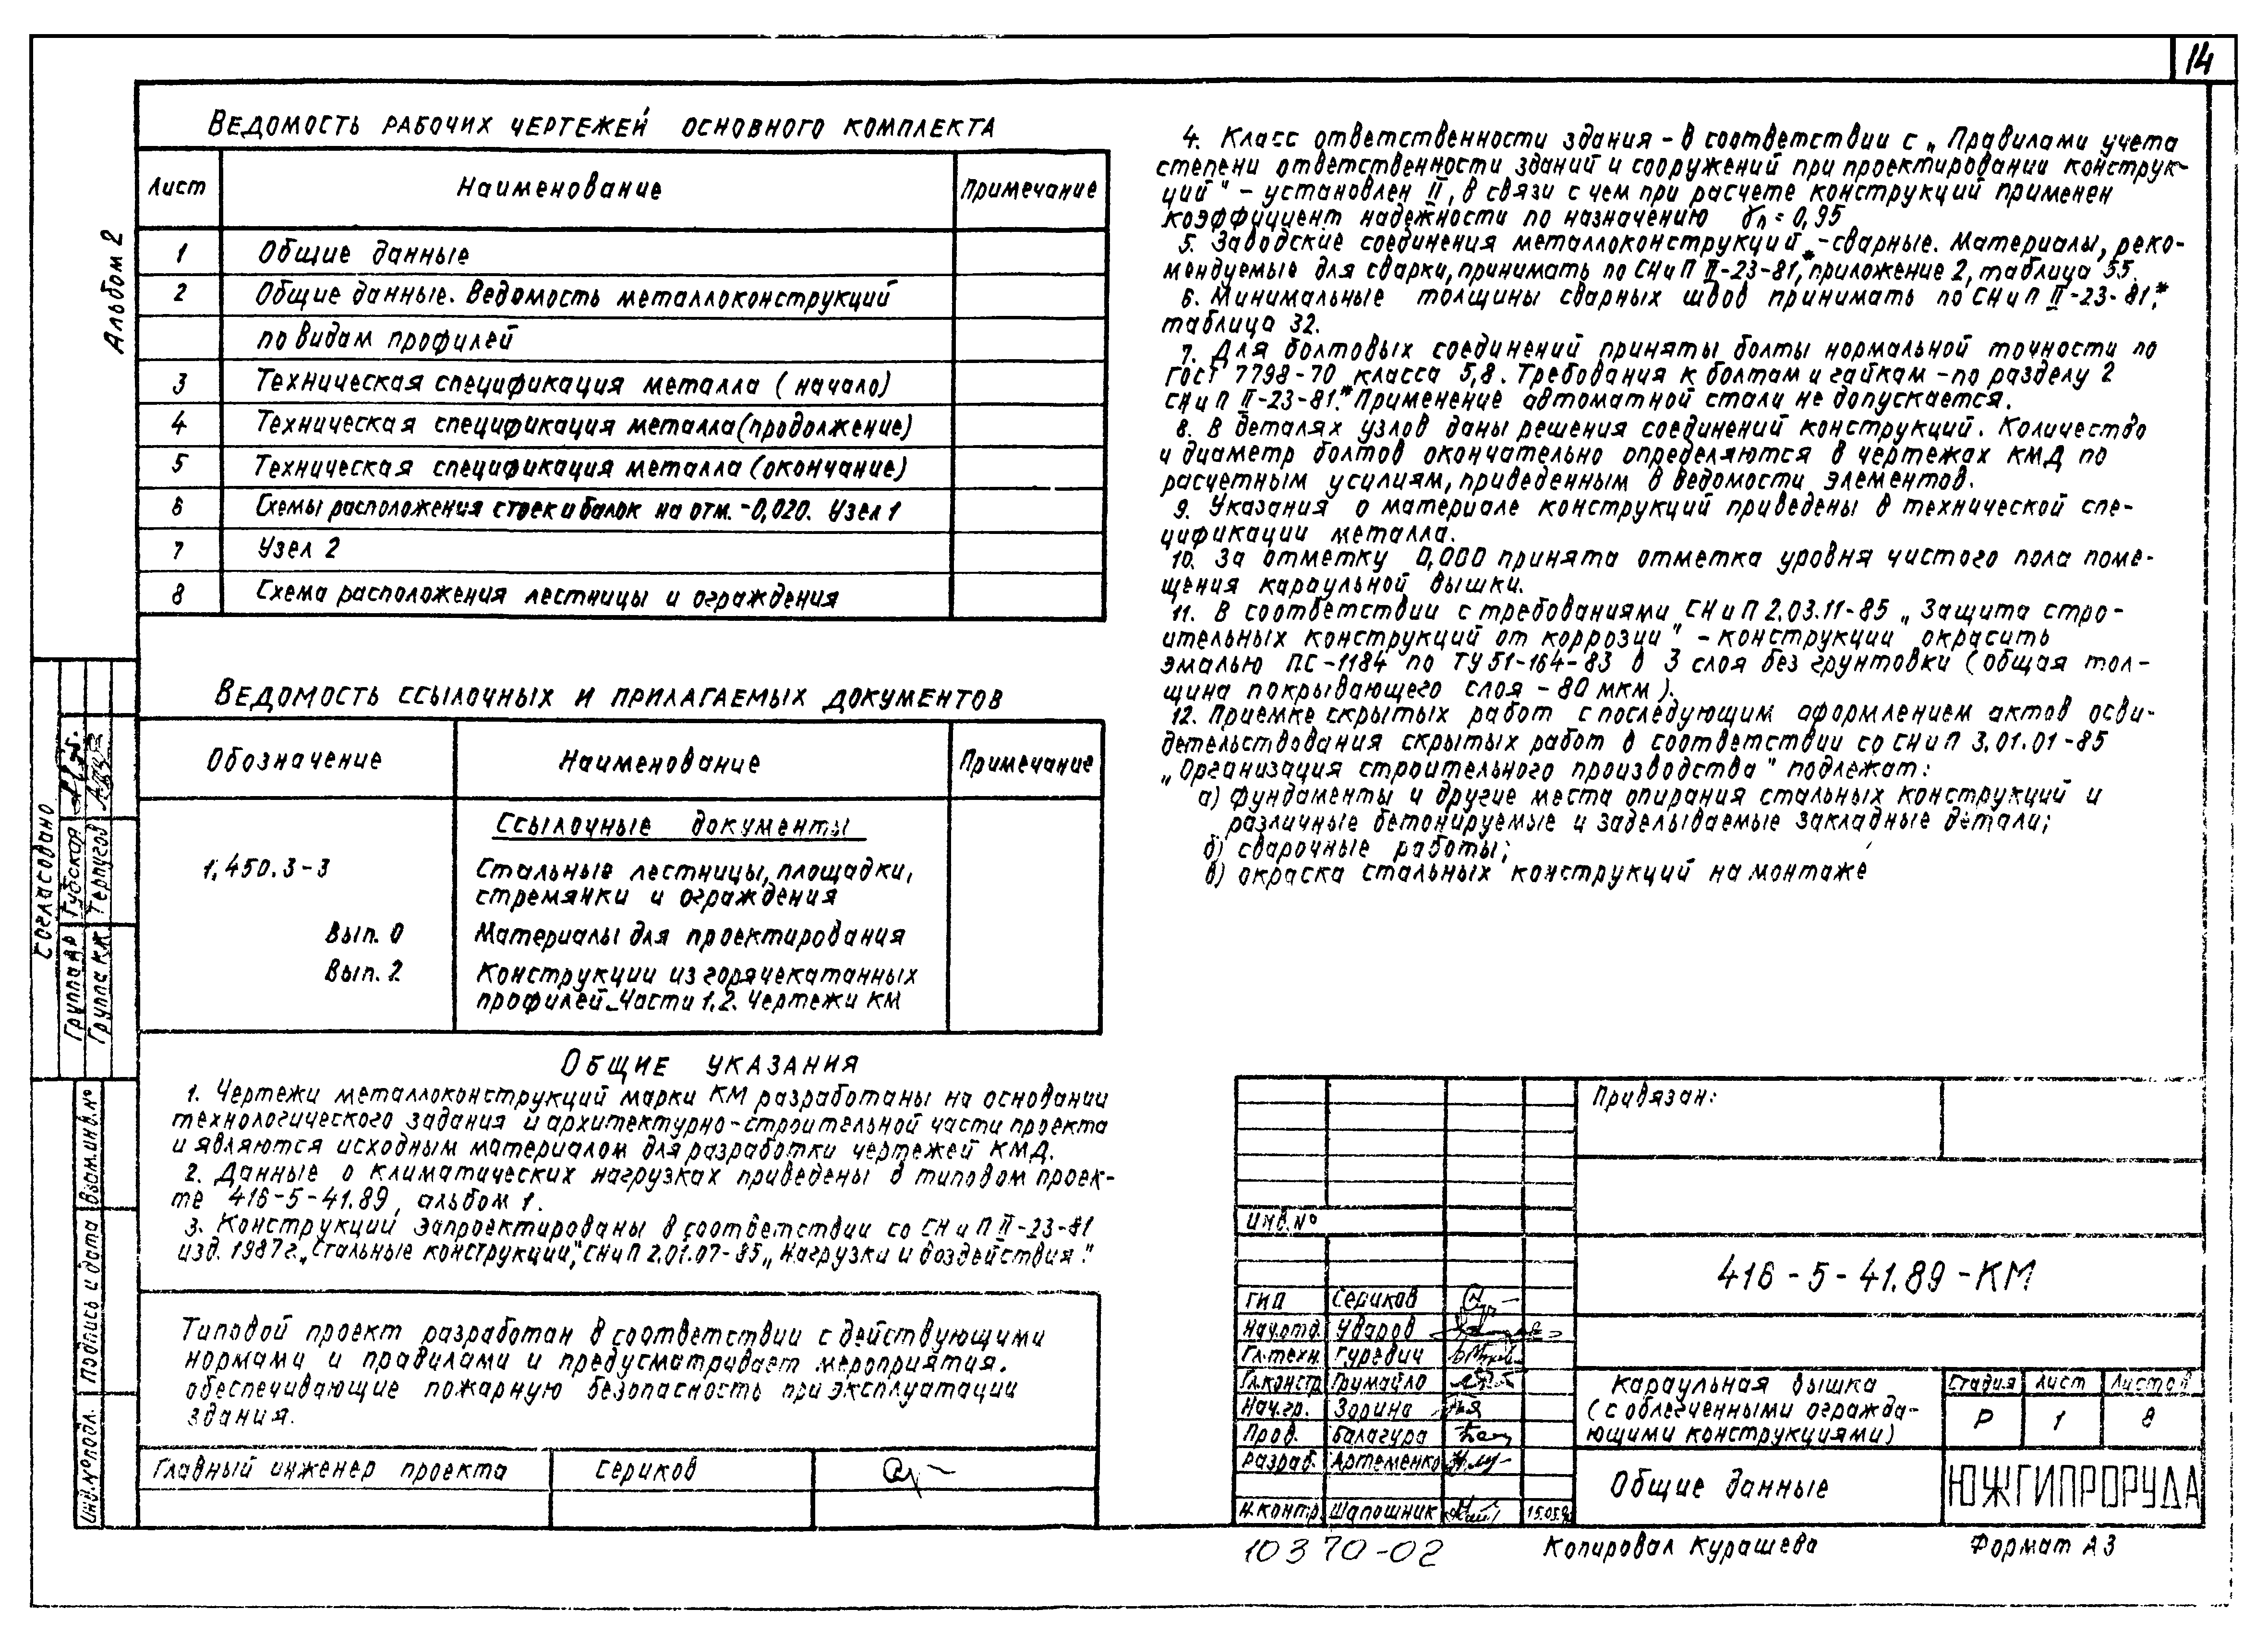 14
Альбом 2
Ведомость рабочих чертежей основного комплекта
Лист Наименование Примечание
1 Общие данные
2 Общие данные. Ведомость металлоконструкций
по видам профилей
3 Техническая спецификация металла (начало)
4 Техническая спецификация металла (продолжение)
5 Техническая спецификация металла (окончание)
6 Схемы расположения стоек и балок на отм. -0,020. Узел 1
7 Узел 2
8 Схема расположения лестницы и ограждения
Ведомость ссылочных и прилагаемых документов
Обозначение Наименование Примечание
Ссылочные документы
1.450.3-3 Стальные лестницы, площадки,
стремянки и ограждения
Вып. 0 Материалы для проектирования
Вып. 2 Конструкции из горячекатанных
профилей. Части 1,2. Чертежи КМ
Общие указания
1. Чертежи металлоконструкций марки КМ разработаны на основании
технологического задания и архитектурно-строительной части проекта
и являются исходным материалом для разработки чертежей КМД.
2. Данные о климатических нагрузках приведены в типовом проек-
те 416-5-41.89, альбом 1.
3. Конструкции запроектированы в соответствии со СНиП II-23-81
изд. 1987г. „Стальные конструкции", СНиП 2.01.07-85 „Нагрузки и воздействия".
Типовой проект разработан в соответствии с действующими
нормами и правилами и предусматривает мероприятия.
обеспечивающие пожарную безопасность при эксплуатации
здания.
Главный инженер проекта Сериков
4. Класс ответственности здания - в соответствии с „Правилами учета
степени ответственности зданий и сооружений при проектировании конструк-
ций" - установлен II, в связи с чем при расчете конструкций применен
коэффициент надежности по назначению γn = 0,95
5. Заводские соединения металлоконструкций - сварные. Материалы, реко-
мендуемые для сварки, принимать по СНиП II-23-81*, приложение 2, таблица 55.
6. Минимальные толщины сварных швов принимать по СНиП II-23-81*,
таблица 32.
7. Для болтовых соединений приняты болты нормальной точности по
ГОСТ 7798-70 класса 5,8. Требования к болтам и гайкам - по разделу 2
СНиП II-23-81*. Применение автоматной стали не допускается.
8. В деталях узлов даны решения соединений конструкций. Количество
и диаметр болтов окончательно определяются в чертежах КМД по
расчетным усилиям, приведенным в ведомости элементов.
9. Указания о материале конструкций приведены в технической спе-
цификации металла.
10. За отметку 0,000 принята отметка уровня чистого пола поме-
щения караульной вышки.
11. В соответствии с требованиями СНиП 2.03.11-85 „Защита стро-
ительных конструкций от коррозии" - конструкции окрасить
эмалью ПС-1184 по ТУ 51-164-83 в 3 слоя без грунтовки (общая тол-
щина покрывающего слоя - 80 мкм).
12. Приемке скрытых работ с последующим оформлением актов осви-
детельствования скрытых работ в соответствии со СНиП 3.01.01-85
„Организация строительного производства" подлежат:
а) фундаменты и другие места опирания стальных конструкций и
различные бетонируемые и заделываемые закладные детали;
б) сварочные работы;
в) окраска стальных конструкций на монтаже
Согласовано
Группа АР Губская
Группа КЖ Терпугов
Взам. инв. №
Подпись и дата
Инв. № подл.
Привязан:
Инв. №
416-5-41.89-КМ
ГИП Сериков
Нач.отд. Уваров
Гл.техн. Гуревич
Гл.констр. Грумайло
Нач.гр. Зорина
Пров. Балагура
Разраб. Артеменко
Н.контр. Шапошник
Караульная вышка
(с облегченными огражда-
ющими конструкциями)
Стадия Лист Листов
Р 1 8
Общие данные
ЮЖГИПРОРУДА
10370-02 Копировал Курашева Формат А3